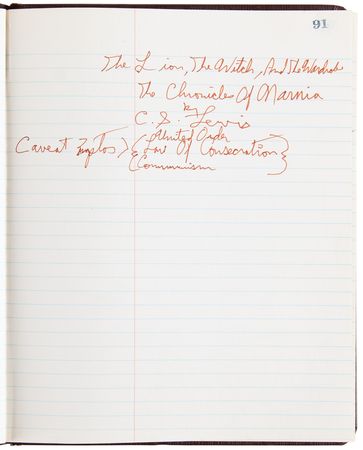 91
The Lion, The Witch, And The Wardrobe
The Chronicles Of Narnia
by
C. S. Lewis
{United Order
Caveat > {Law Of Consecration}
{Communism